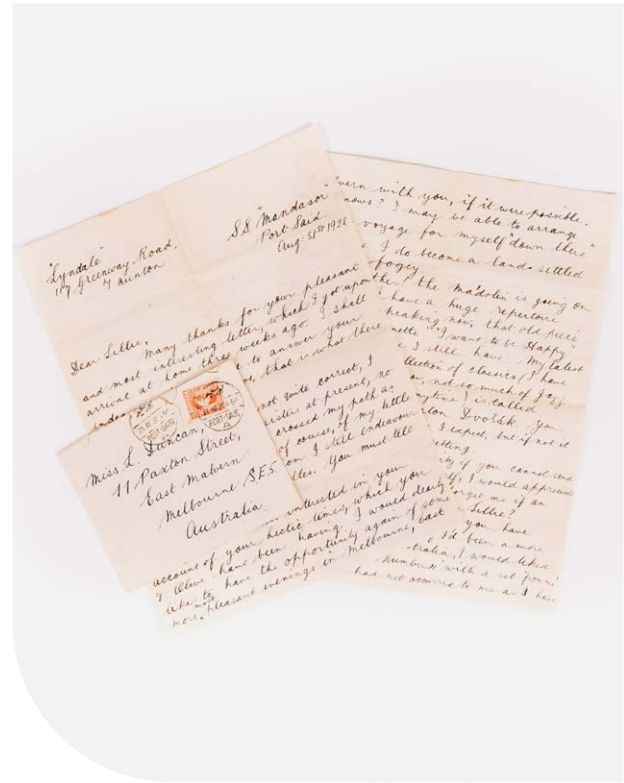 "Lyndale"
117 Greenway Road.
Taunton
S.S. "Mandasor"
Port Said.
Aug: 31st 1928
Dear Lillie,
Many thanks for your pleasant
and most interesting letter, which I got upon
arrival at home three weeks ago. I shall
to answer your
, that is what there
not quite correct, I
sisters at present, no
crossed my path as
of course, if my little
on I still endeavour
. You must tell
interested in your
account of your hectic times, which you
& Olive have been having. I would dearly
like to have the opportunity again of some
more pleasant evenings in Melbourne,
Miss L. Duncan,
11 Paxton Street,
East Malvern
Melbourne S.E.5.
Australia.
PORT-SAID
PORT-SAID
vern with you, if it were possible.
nows? I may be able to arrange
voyage for myself "down there"
I do become a land-settled
fogey
the madolin is going on
have a huge repertoire
speaking now, that old piece
nette "I want to be Happy"
I still have. My latest
llection of classics (I have
, not so much of Jazz
anytime) is called
Dvořák. You
I expect, but if not it
getting.
if you cannot send
, I would appreciate
forget me if an
Lillie?
you have
I'd been a more
tralia, I would liked
number with a set
had not occurred to me as I have